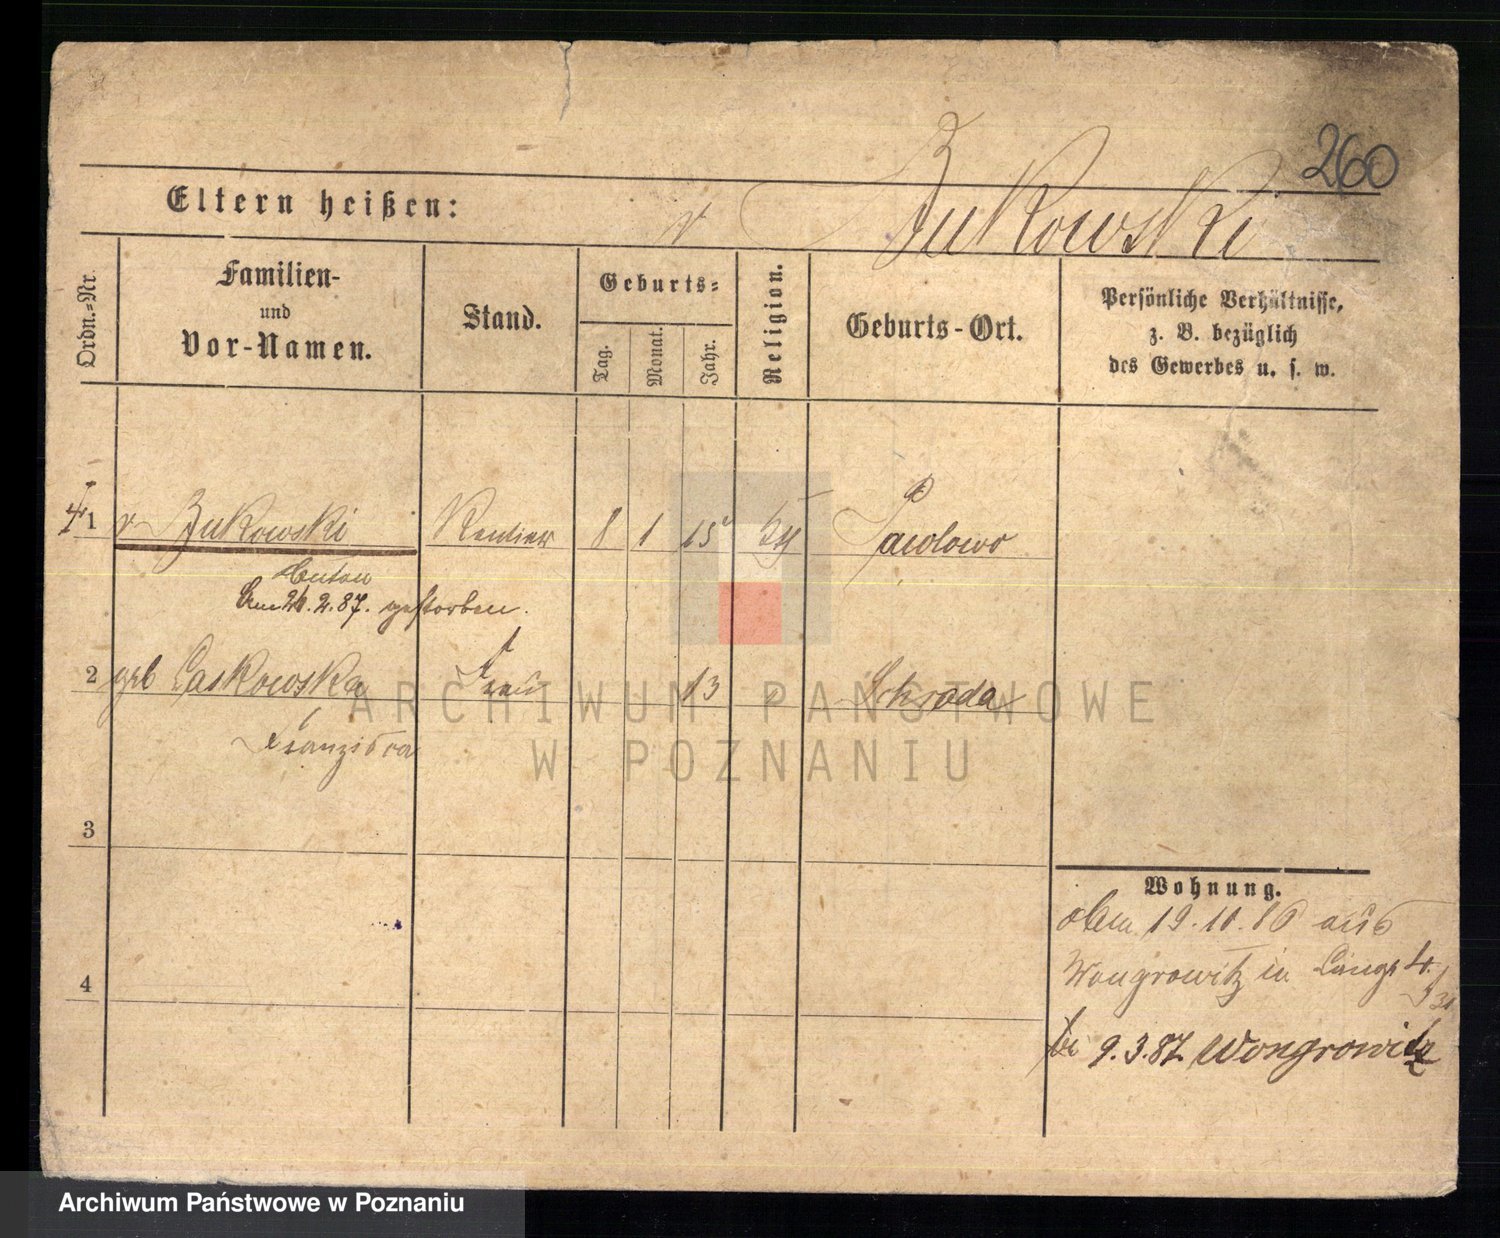 260
Eltern heißen: v Zukowski
Ordn.-Nr.
Familien-
und
Vor-Namen.
Stand.
Geburts-
Tag.
Monat.
Jahr.
Religion.
Geburts-Ort.
Persönliche Verhältnisse,
z. B. bezüglich
des Gewerbes u. s. w.
1 v Zukowski Rentier 8 1 15 Pawlowo
Anton
Am 26.2.87. gestorben.
2 geb Laskowska Frau 13 Schroda
Franziska
3
4
Wohnung.
Am 19.10.86 aus
Wongrowitz in Langs 4.
9.3.87 Wongrowitz
ARCHIWUM PAŃSTWOWE
W POZNANIU
Archiwum Państwowe w Poznaniu